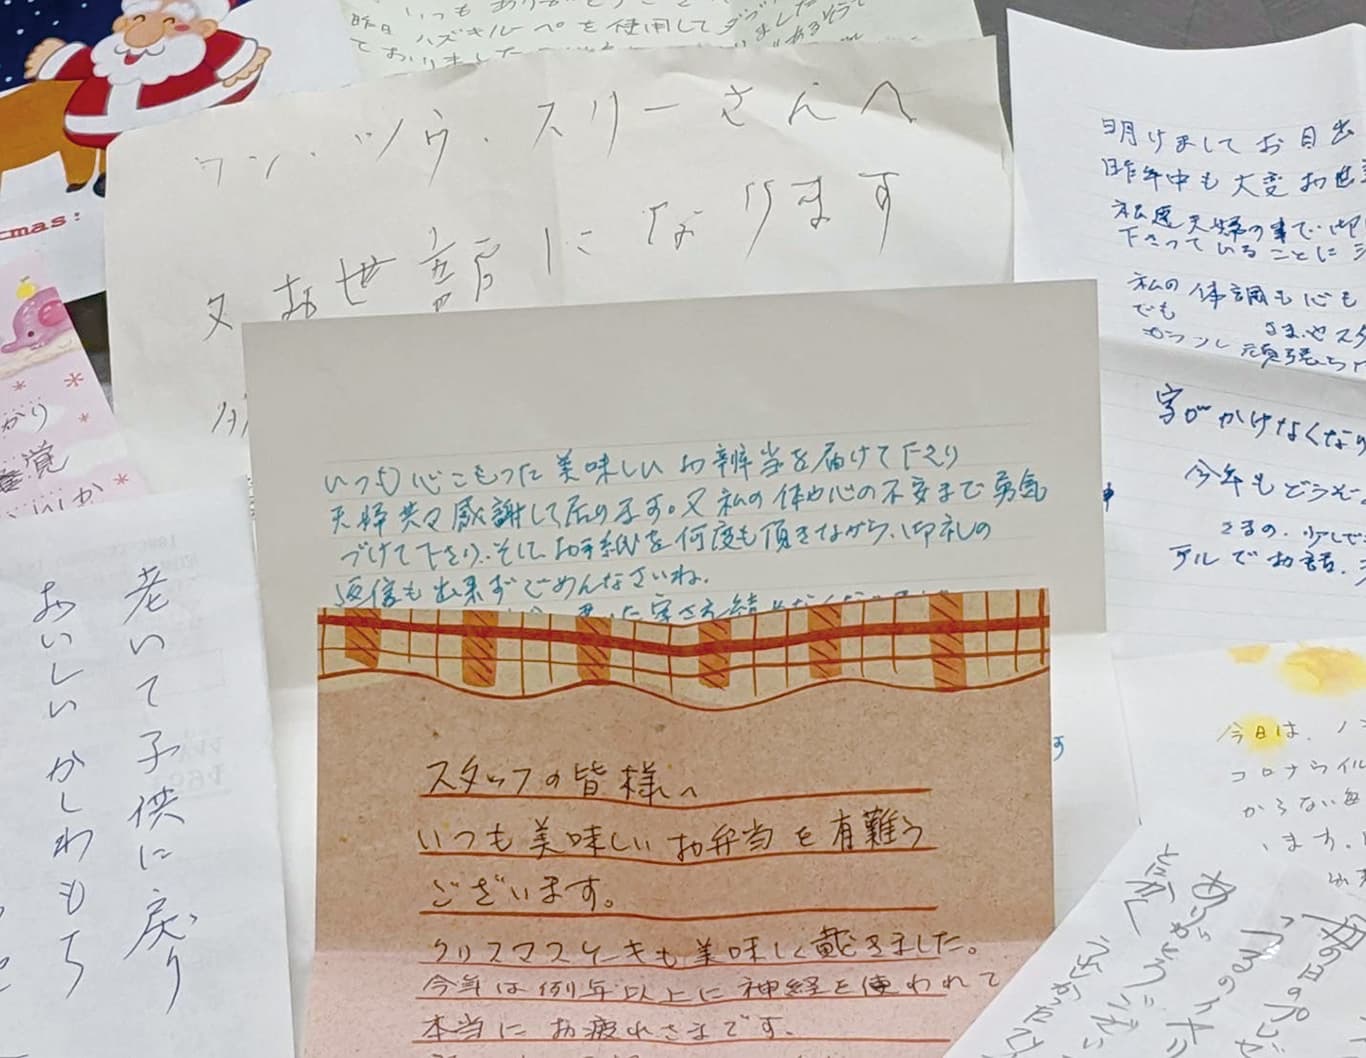 いつも
昨日ハズキルーペを使用して
ておりました
mas:
ワン、ツウ、スリーさんへ
又お世話になります
明けましてお目出
昨年中も大変お世
私達夫婦の事で、御
下さっていることに
私の体調も心も
でも
さまやスタ
頑張
字がかけなくなり
今年もどうぞ
さるの、少しで
テルでお話、
かり
覚
いしか
いつも心こもった美味しいお辨当を届けて下さり
夫婦共々感謝して居ります。又私の体や心の不安まで勇気
づけて下さり、そして、お手紙を何度も頂きながら、御礼の
返信も出来ずごめんなさいね。
老いて子供に戻り
おいしいかしわもち
スタッフの皆様へ
いつも美味しいお弁当を有難う
ございます。
クリスマスケーキも美味しく戴きました。
今年は例年以上に神経を使われて
本当にお疲れさまです。
今日は、
コロナウイル
からない毎
います。
母の日のプレ
つるのイ
ありがとうござい
とにかく
うれしかった